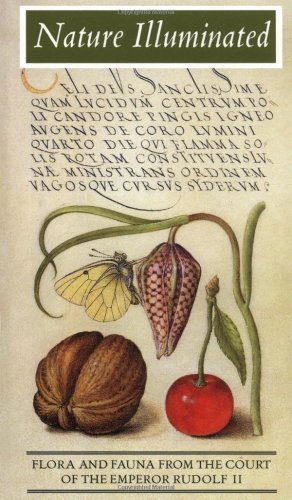 Nature Illuminated
CELI DEUS SANCTISSIME
QUAM LUCIDUM CENTRUM PO
LI CANDORE PINGIS IGNEO
AUGENS DECORO LUMINI
QUARTO DIE QUI FLAMMA SO
LIS ROTAM CONSTITUENS LU
NÆ MINISTRANS ORDINEM
VAGOSQUE CURSUS SYDERUM
FLORA AND FAUNA FROM THE COURT
OF THE EMPEROR RUDOLF II